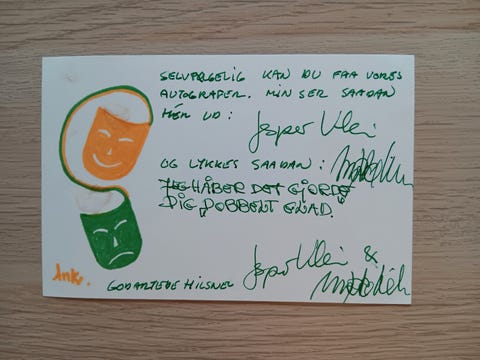 SELVFØLGELIG KAN DU FAA VORES
AUTOGRAFER. MIN SER SAADAN
HER UD: Jesper Klein
OG LYKKES SAADAN:
JEG HÅBER DET GJORDE
DIG DOBBELT GLAD.
Jesper Klein &
GODARTEDE HILSNER
Ank.